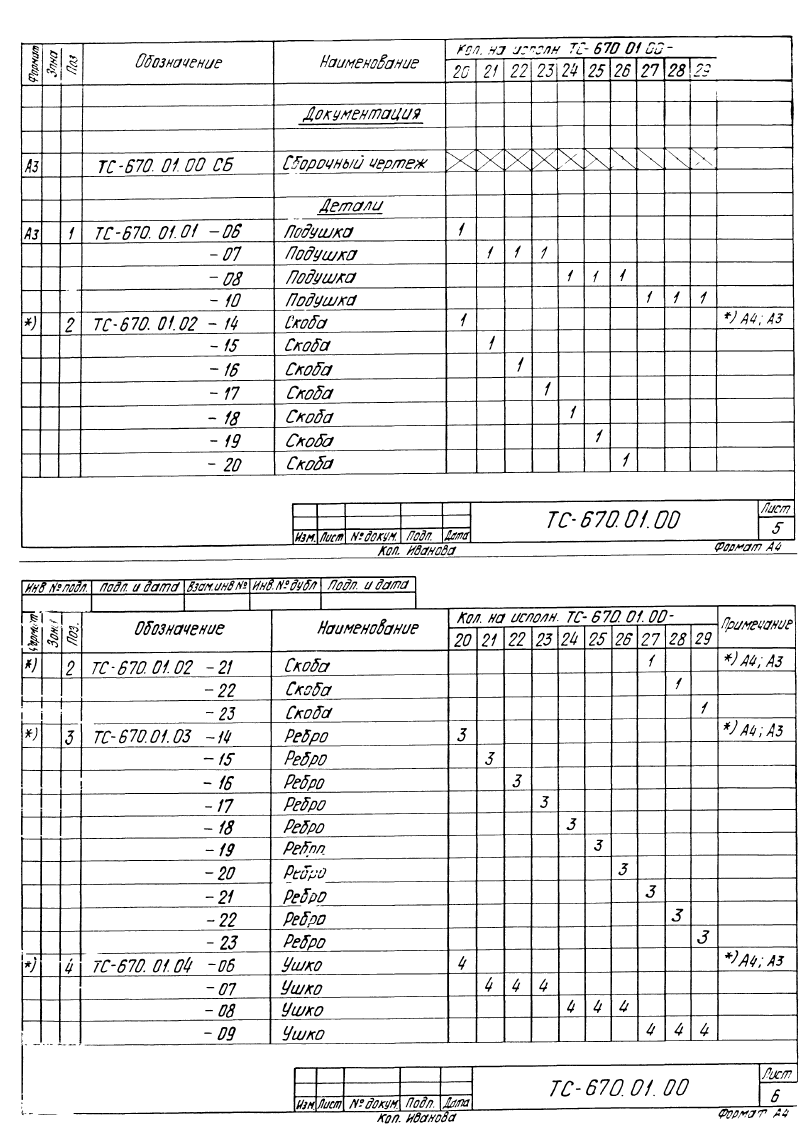 Формат Зона Поз Обозначение Наименование Кол. на исполн. ТС-670 01 00-
20 21 22 23 24 25 26 27 28 29
Документация
А3 ТС-670. 01. 00 СБ Сборочный чертеж
Детали
А3 1 ТС-670. 01. 01 -06 Подушка 1
-07 Подушка 1 1 1
-08 Подушка 1 1 1
-10 Подушка 1 1 1
*) 2 ТС-670. 01. 02 -14 Скоба 1 *) А4; А3
-15 Скоба 1
-16 Скоба 1
-17 Скоба 1
-18 Скоба 1
-19 Скоба 1
-20 Скоба 1
ТС-670. 01. 00 Лист 5
Изм. Лист № докум. Подп. Дата
Коп. Иванова Формат А4
Инв № подл. Подп. и дата Взам. инв № Инв. № дубл Подп. и дата
Формат Поз. Обозначение Наименование Кол. на исполн. ТС-670. 01. 00- Примечание
20 21 22 23 24 25 26 27 28 29
*) 2 ТС-670. 01. 02 -21 Скоба 1 *) А4; А3
-22 Скоба 1
-23 Скоба 1
*) 3 ТС-670. 01. 03 -14 Ребро 3 *) А4; А3
-15 Ребро 3
-16 Ребро 3
-17 Ребро 3
-18 Ребро 3
-19 Ребро 3
-20 Ребро 3
-21 Ребро 3
-22 Ребро 3
-23 Ребро 3
*) 4 ТС-670. 01. 04 -06 Ушко 4 *) А4; А3
-07 Ушко 4 4 4
-08 Ушко 4 4 4
-09 Ушко 4 4 4
ТС-670. 01. 00 Лист 6
Изм. Лист № докум. Подп. Дата
Коп. Иванова Формат А4